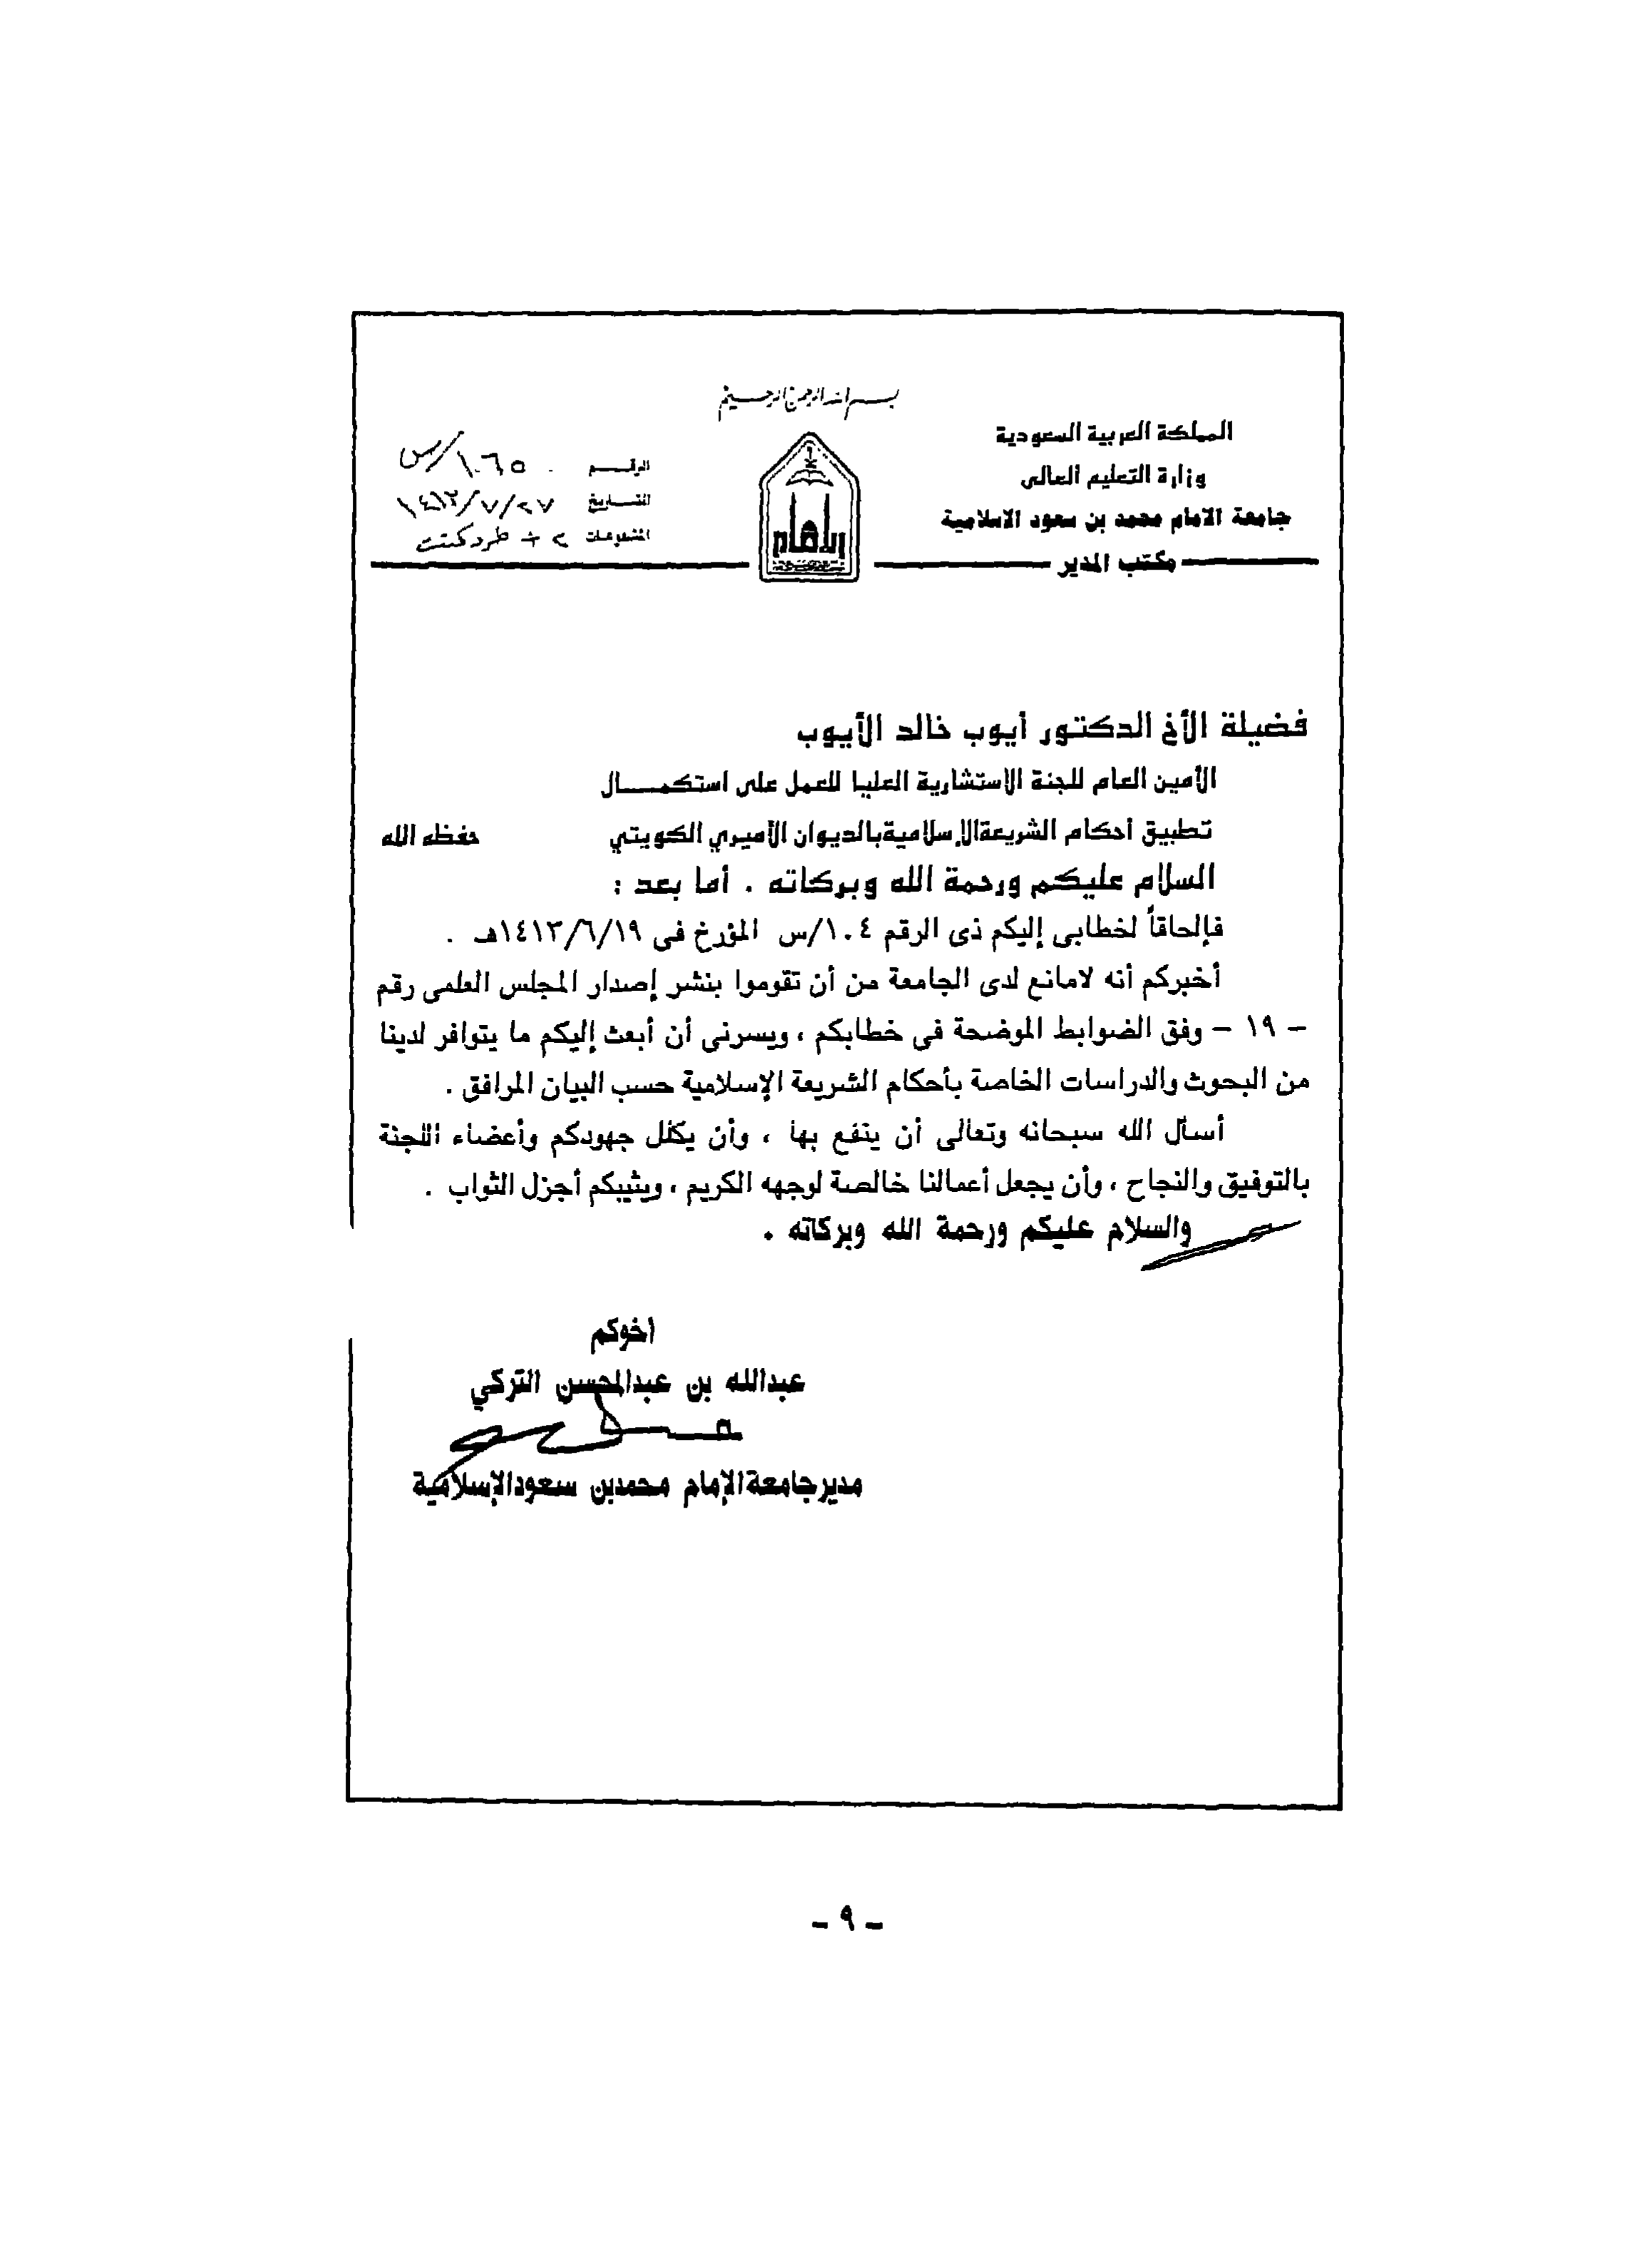 بسم الله الرحمن الرحيم
المملكة العربية السعودية
وزارة التعليم العالى
جامعة الامام محمد بن سعود الاسلامية
مكتب المدير
الرقــم ١٠٦٥/س
التــاريخ ١٤١٣/٧/٢٧
المشفوعات ٢ + طرد كتب
الإمام
فضيلة الأخ الدكتور أيوب خالد الأيوب
الأمين العام للجنة الاستشارية العليا للعمل على استكمـــال
تطبيق أحكام الشريعة الإسلامية بالديوان الأميري الكويتي حفظه الله
السلام عليكم ورحمة الله وبركاته . أما بعد :
فإلحاقاً لخطابى إليكم ذى الرقم ١٠٤/س المؤرخ فى ١٤١٣/٦/١٩هـ .
أخبركم أنه لامانع لدى الجامعة من أن تقوموا بنشر إصدار المجلس العلمى رقم
– ١٩ – وفق الضوابط الموضحة فى خطابكم ، ويسرنى أن أبعث إليكم ما يتوافر لدينا
من البحوث والدراسات الخاصة بأحكام الشريعة الإسلامية حسب البيان المرافق .
أسأل الله سبحانه وتعالى أن ينفع بها ، وأن يكلل جهودكم وأعضاء اللجنة
بالتوفيق والنجاح ، وأن يجعل أعمالنا خالصة لوجهه الكريم ، ويثيبكم أجزل الثواب .
والسلام عليكم ورحمة الله وبركاته .
اخوكم
عبدالله بن عبدالمحسن التركي
مدير جامعة الإمام محمد بن سعود الإسلامية
– ٩ –